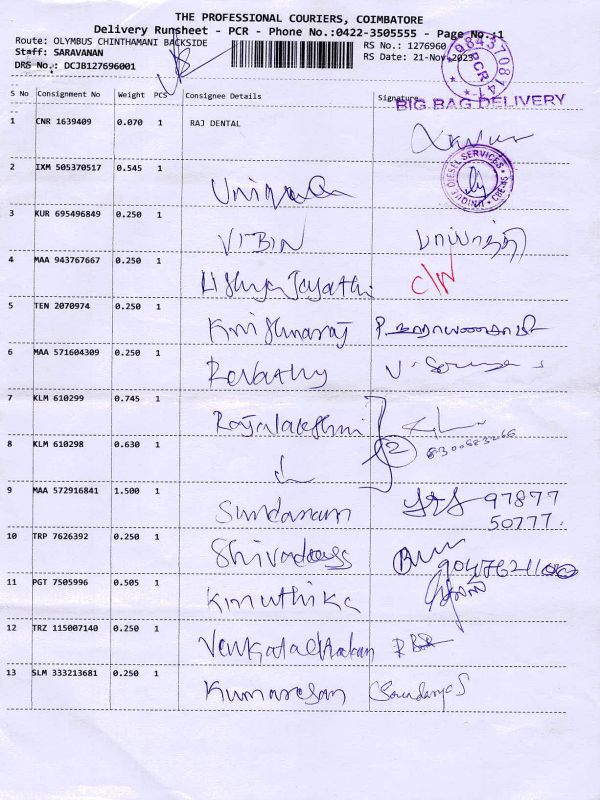 THE PROFESSIONAL COURIERS, COIMBATORE
Delivery Runsheet - PCR - Phone No.:0422-3505555 - Page No.:1
Route: OLYMBUS CHINTHAMANI BACKSIDE RS No.: 1276960
Staff: SARAVANAN RS Date: 21-Nov-2023
DRS No.: DCJB127696001
9843708147
PCR
BIG BAG DELIVERY
S No Consignment No Weight PCS Consignee Details Signature
1 CNR 1639409 0.070 1 RAJ DENTAL
2 IXM 505370517 0.545 1
UNIQUE DIESEL SERVICES
3 KUR 695496849 0.250 1 VIBIN
4 MAA 943767667 0.250 1 C/W
5 TEN 2070974 0.250 1 Krishnaraj
6 MAA 571604309 0.250 1 Revathy
7 KLM 610299 0.745 1 Rajalakshmi
8 KLM 610298 0.630 1 2
9 MAA 572916841 1.500 1 Sundaram 97877
50777
10 TRP 7626392 0.250 1 Shivadass
11 PGT 7505996 0.505 1
12 TRZ 115007140 0.250 1
13 SLM 333213681 0.250 1 Kumaresan Soundarya S